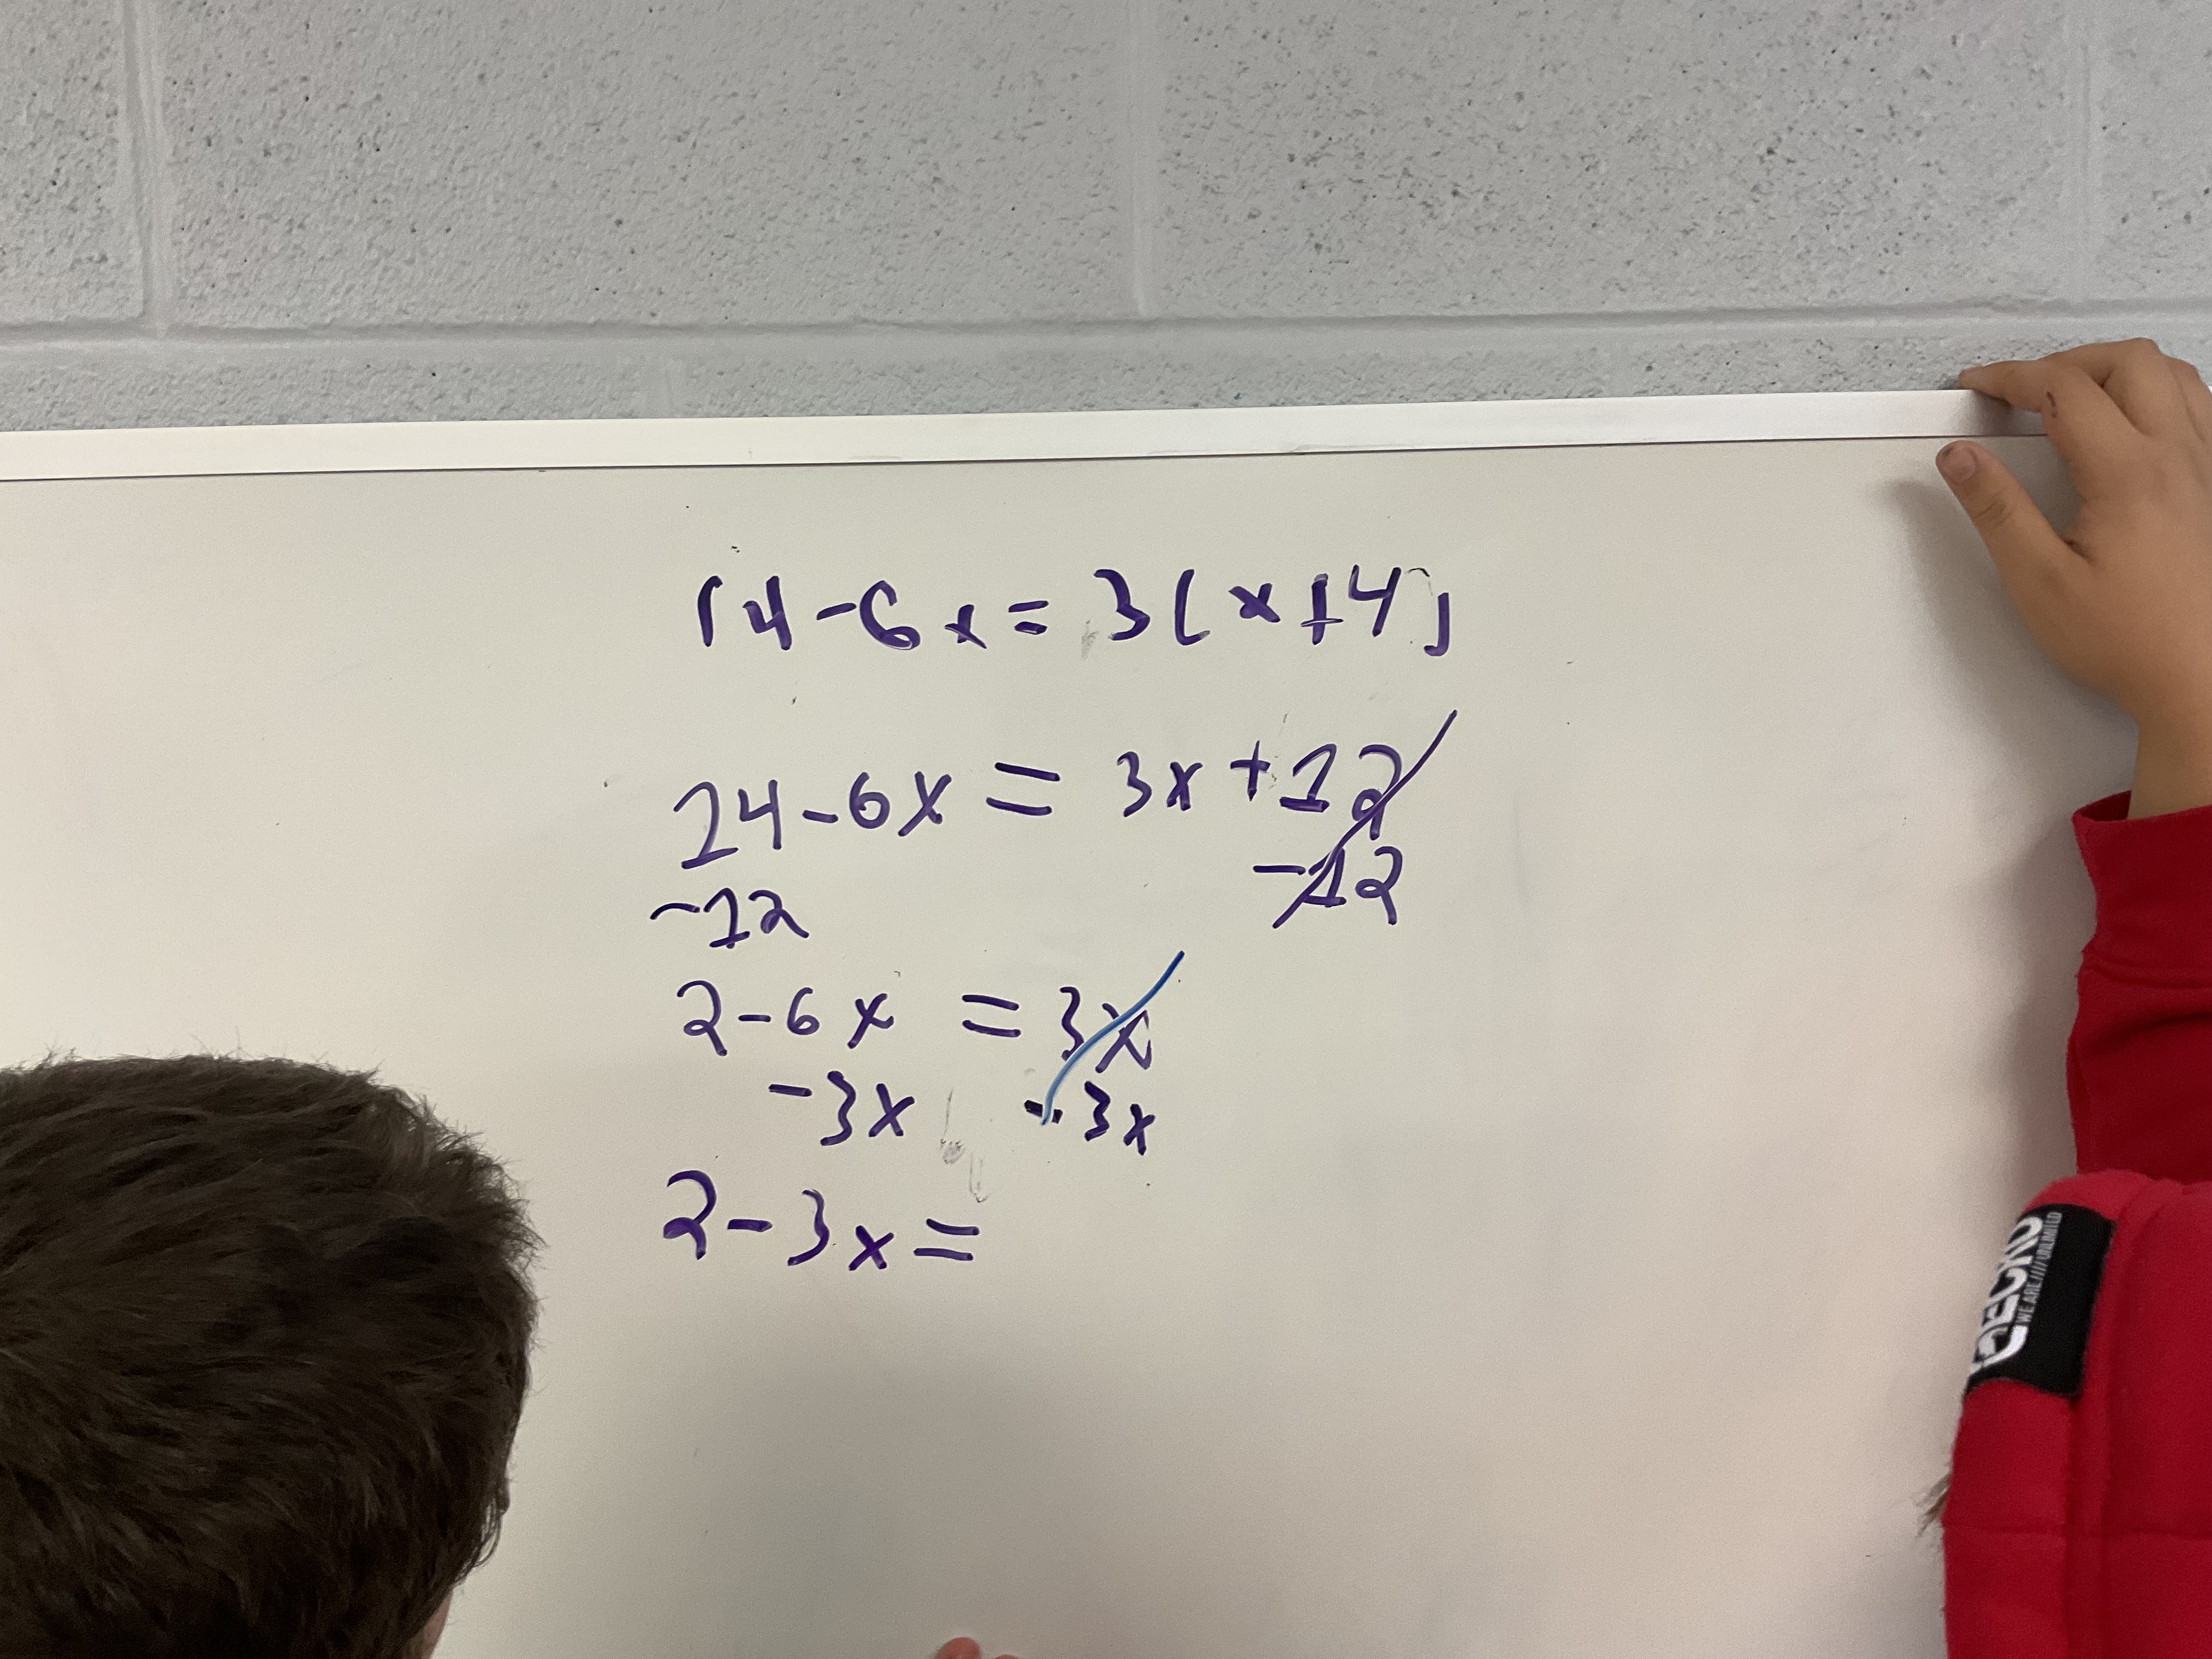 14-6x=3(x+4)
14-6x=3x+12
-12 -12
2-6x=3x
-3x -3x
2-3x=
ECKO
WE ARE ////UNLIMITED